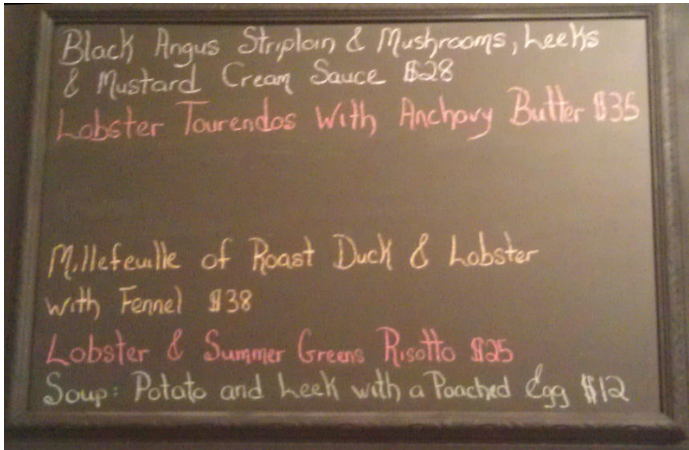 Black Angus Striploin & Mushrooms, Leeks
& Mustard Cream Sauce $28
Lobster Tourendos With Anchovy Butter $35
Millefeuille of Roast Duck & Lobster
with Fennel $38
Lobster & Summer Greens Risotto $25
Soup: Potato and Leek with a Poached Egg $12